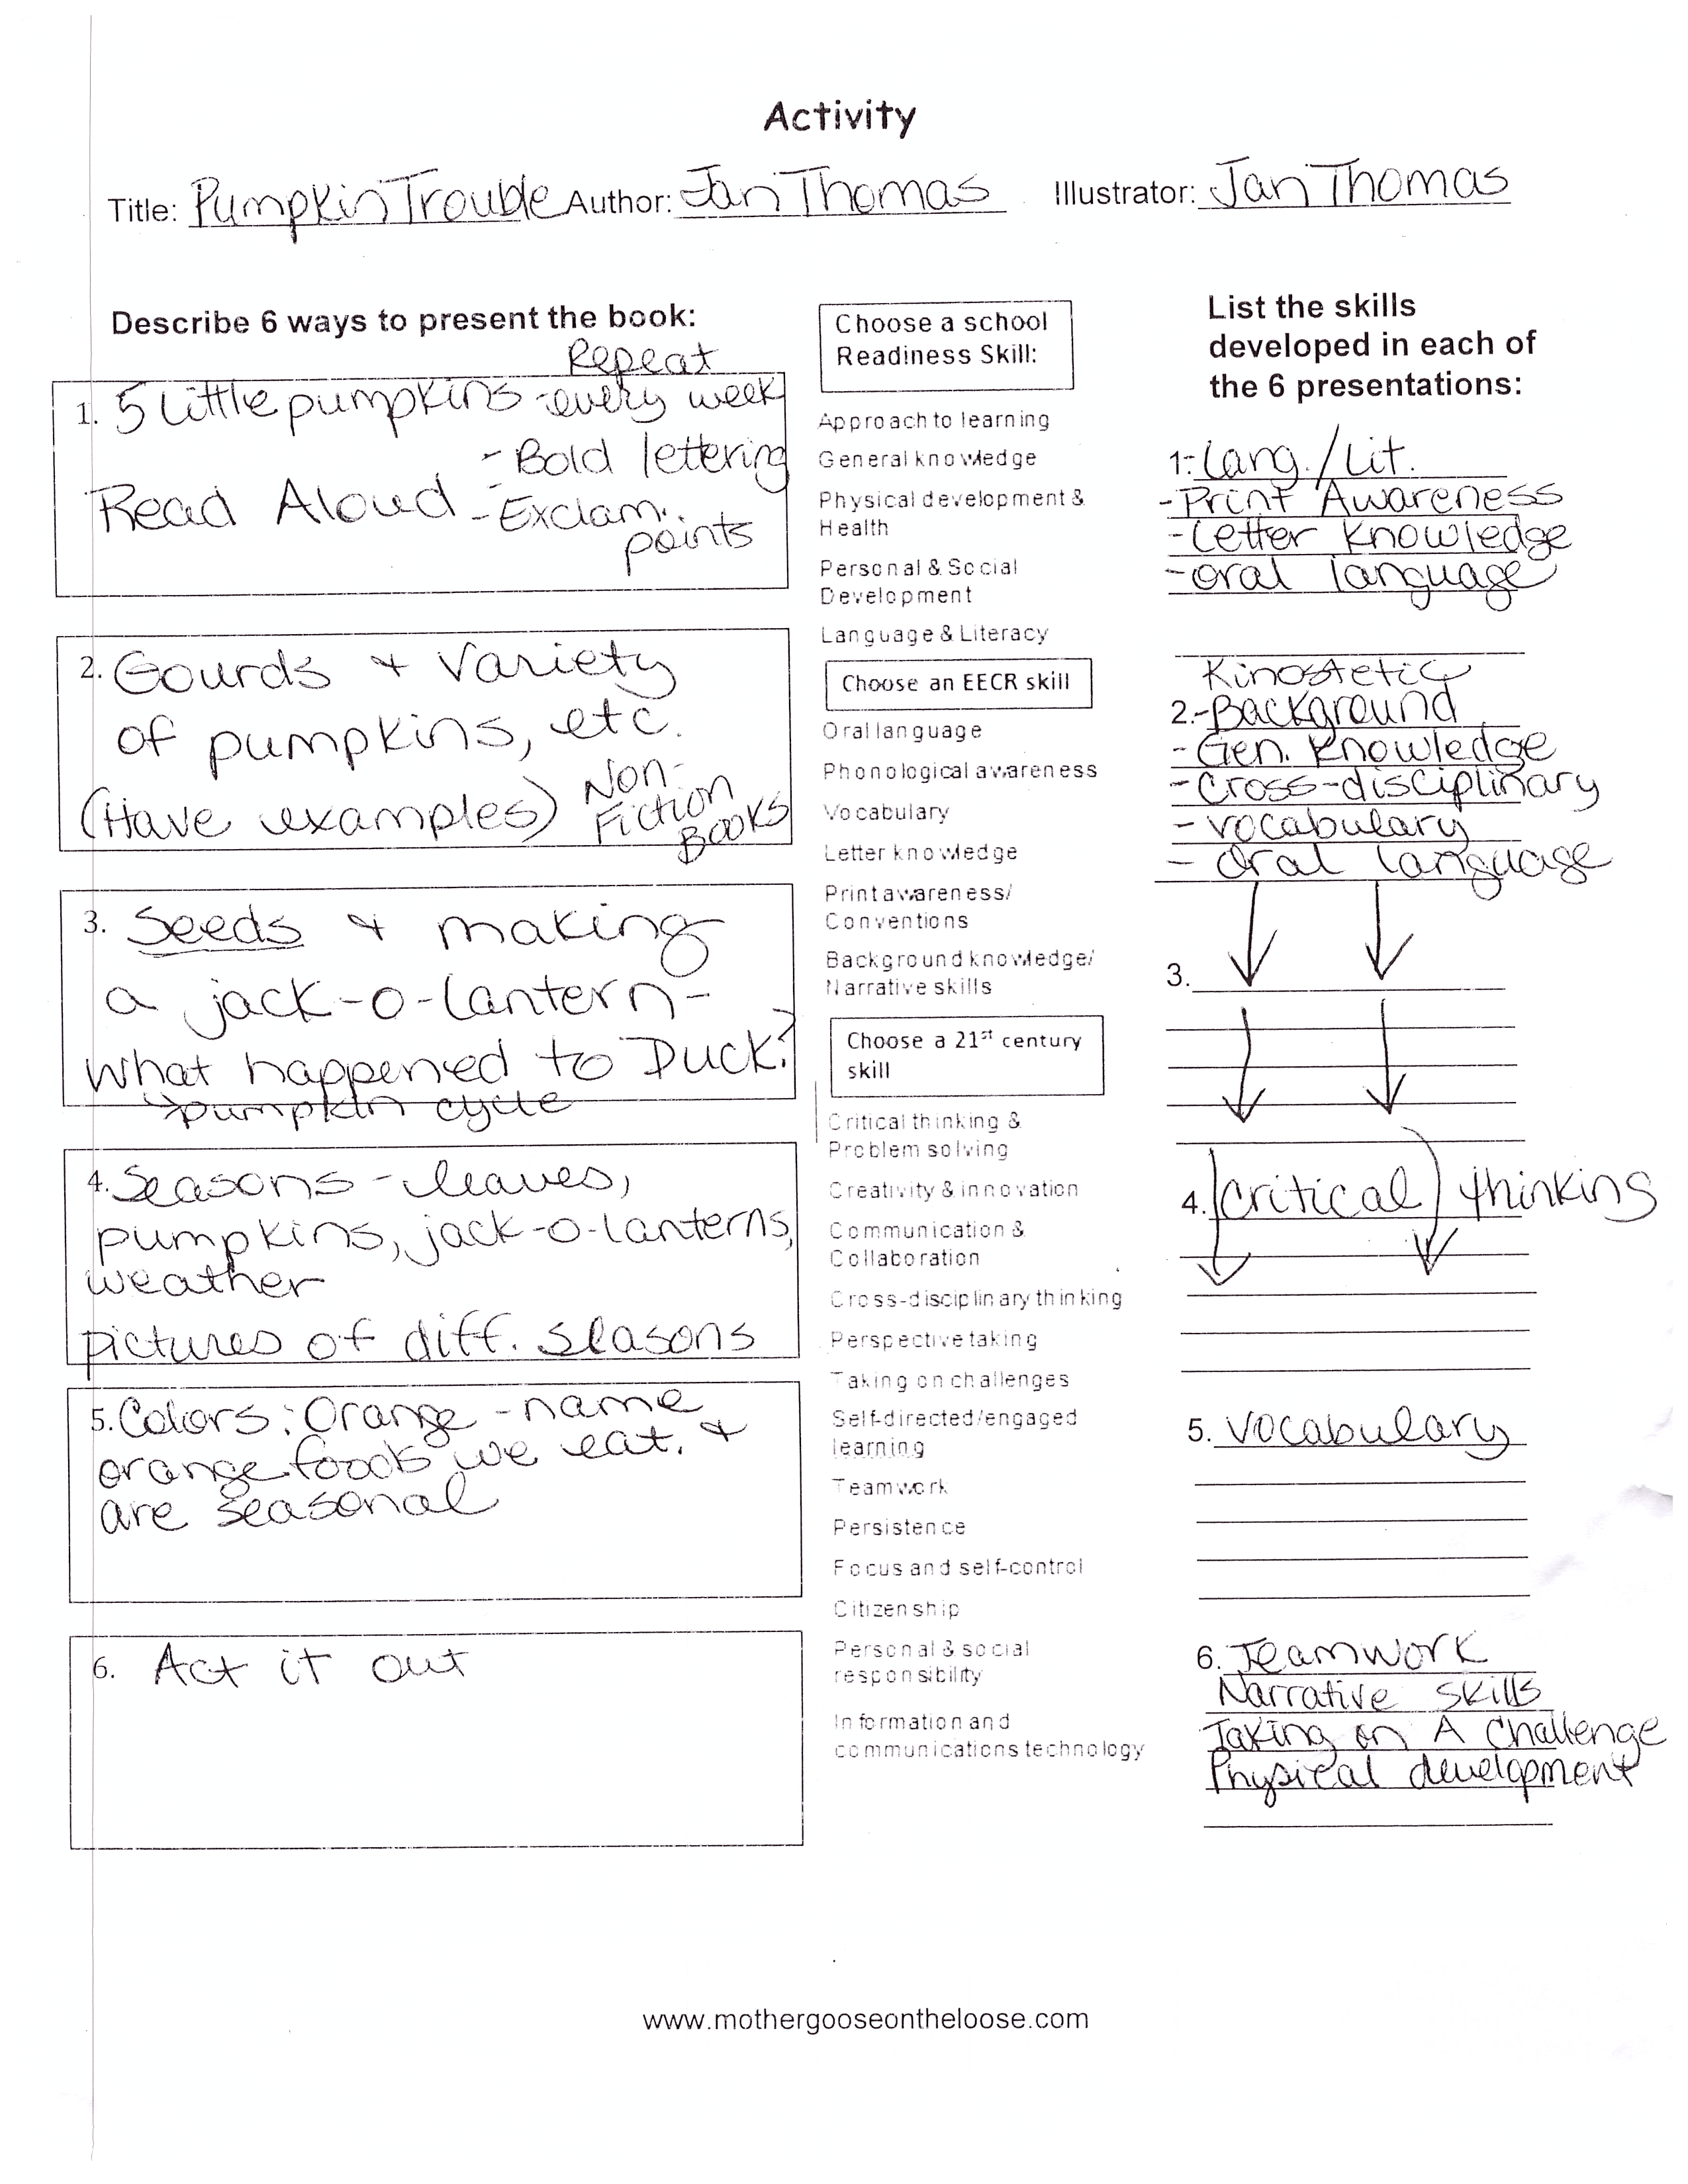 Activity
Title: Pumpkin Trouble Author: Jan Thomas Illustrator: Jan Thomas
Describe 6 ways to present the book:
Repeat
1. 5 little pumpkins - every week
- Bold lettering
Read Aloud - Exclam.
points
2. Gourds + variety
of pumpkins, etc.
(Have examples) Non-
Fiction
Books
3. Seeds + making
a jack-o-lantern-
What happened to Duck?
pumpkin cycle
4. Seasons - leaves,
pumpkins, jack-o-lanterns,
weather
pictures of diff. seasons
5. Colors: Orange - name
orange foods we eat. +
are seasonal
6. Act it out
Choose a school
Readiness Skill:
Approach to learning
General knowledge
Physical development &
Health
Personal & Social
Development
Language & Literacy
Choose an EECR skill
Oral language
Phonological awareness
Vocabulary
Letter knowledge
Print awareness/
Conventions
Background knowledge/
Narrative skills
Choose a 21st century
skill
Critical thinking &
Problem solving
Creativity & innovation
Communication &
Collaboration
Cross-disciplinary thinking
Perspective taking
Taking on challenges
Self-directed/engaged
learning
Teamwork
Persistence
Focus and self-control
Citizenship
Personal & social
responsibility
Information and
communications technology
List the skills
developed in each of
the 6 presentations:
1. Lang./Lit.
- Print Awareness
- Letter Knowledge
- oral language
Kinostetic
2. - Background
- Gen. Knowledge
- Cross-disciplinary
- vocabulary
- Oral language
3.
4. critical thinking
5. vocabulary
6. Teamwork
Narrative skills
Taking on A Challenge
Physical development
www.mothergooseontheloose.com